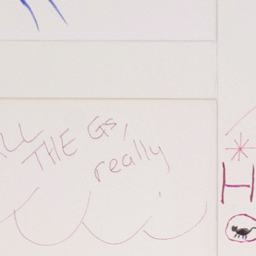 ALL
THE Gs,
really
H